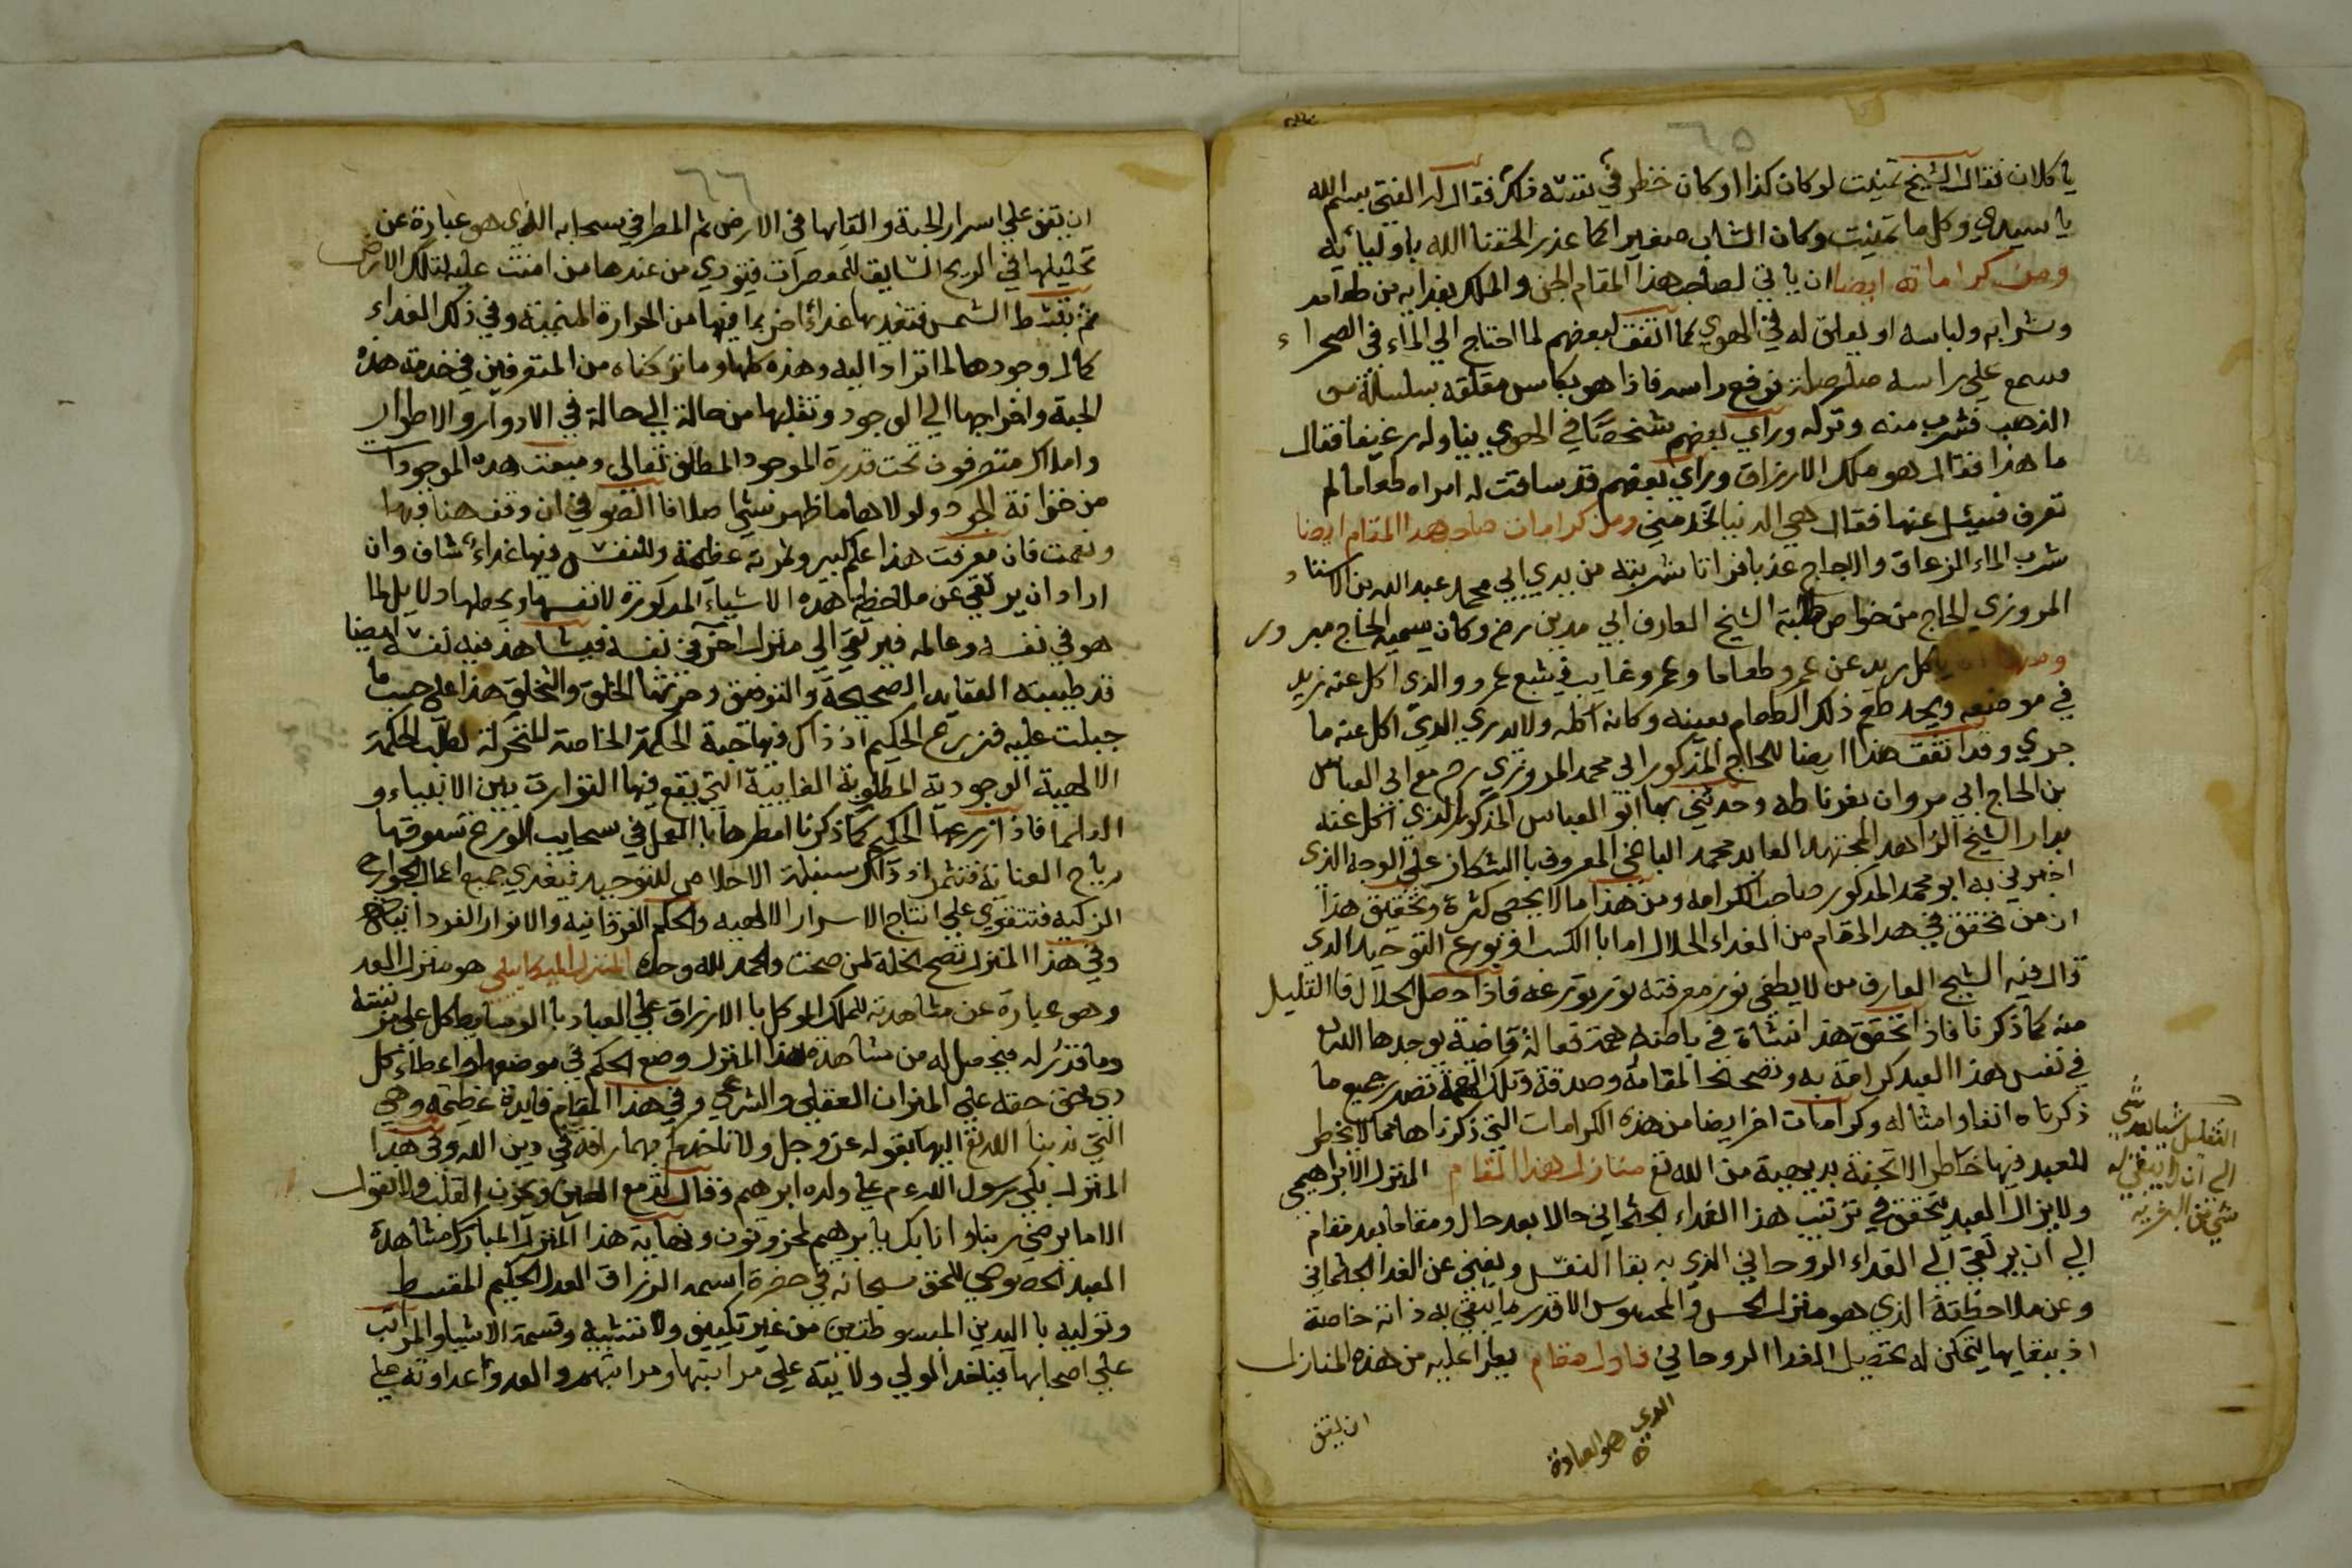 ٦٥
ياكلان فقال الشيخ تمنيت لو كان كذا او كان خطر في نفسه فكر فقال له الفتى بسم الله
يا سيدي وكل ما تمنيت وكان الشاب صغيرا كما عذر الحقنا الله باوليائه
ومن كراماته ايضا ان ياتي لصاحب هذا المقام الجن والملك بغذايه من طعامه
وشرابه ولباسه او يعلق له في الهوي كما اتفق لبعضهم لما احتاج الي الماء في الصحراء
فسمع علي راسه صلصلة فرفع راسه فاذا هو بكاس معلقه بسلسلة من
الذهب فشرب منه وتركه وراي بعضهم شخصا في الهوي يناوله رغيفا فقال
ما هذا فقال هو ملك الارزاق وراي بعضهم قد ساقت له امراه طعاما لم
تعرف فسئل عنها فقال هي الدنيا تخدمني ومن كرامات صاحب هذا المقام ايضا
شرب الماء الزعاق والاجاج عذبا فراتا شربته من يدي ابي محمد عبد الله بن الاستاد
المروزي الحاج من خواص طلبة الشيخ العارف ابي مدين رضي وكان يسميه الحاج مبرور
ومنها ان ياكل زيد عن عمرو طعاما وعمرو غايب فيشبع عمرو والذي اكل عنه زيد
في موضعه ويجد طعم ذلك الطعام بعينه وكانه اكله ولا يدري الذي اكل عنه ما
جري وقد اتفق هذا ايضا للحاج المذكور ابي محمد المروزي رح مع ابي العباس
بن الحاج ابي مروان بغرناطه وحدثني بها ابو العباس المذكور الذي اكل عنه
بدار الشيخ الزاهد المجتهد العابد محمد الباغي المعروف بالشكاز علي الوجه الذي
اخبرني به ابو محمد المذكور صاحب الكرامه ومن هذا ما لا يحصي كثرة وتحقيق هذا
ان من تحقق في هذا المقام من الغذاء الحلال اما با الكسب او بورع التوحيد الذي
قال فيه الشيخ العارف من لا يطفي نور معرفته نور ورعه فاذا حصل الحلال فا القليل
منه كما ذكرنا فاذا تحقق هذا انتشاة في باطنه همة فعالة قاضية يوجدها الله
في نفس هذا العبد كرامة به وتصحيحا لمقامه وصدقه وتلك الهمة تصدر جميع ما
ذكرناه انفا وامثاله وكرامات اخر ايضا من هذه الكرامات التي ذكرناها مما لا يخطر
للعبد فيها خاطر الا تجئه بديهية من الله تع منازل هذا المقام المنزل الابراهيمي
ولا يزال العبد يتحقق في ترتيب هذا الغذاء الجثماني حالا بعد حال ومقاما بعد مقام
الي ان يرتقي الي الغذاء الروحاني الذي به بقا النفس ويغني عن الغذا الجثماني
وعن ملاحظته الذي هو منزل الحس والمحسوس الا قدر ما يبقي به ذاته خاصة
اذ ببقايها يتمكن له تحصيل الغذا الروحاني فاول مقام يطرا عليه من هذه المنازل
ان يقف
التقليل شيا بعد شي
الي ان لا يبقي له
شي من البشريه
الذي هو العبادة
٦٦
ان يقف علي اسرار الحبة والقايها في الارض ثم المطر في سحابه الذي هو عبارة عن
تحليلها في الريح السايق للمعصرات فيتودي من عندها من امنت عليه لتلك الارض
ثم بنشط الشمس فتغذيها غذاء اخر بما فيها من الحرارة المنجية وفي ذلك الغذاء
كمال وجودها لما تراد اليه وهذه كلها وما تركناه من المتعرفين في خدمة هذه
الحبة واخراجها الي الوجود وتنقلها من حالة الي حالة في الادوار والاطوار
واملاك متصرفون تحت قدرة الموجود المطلق تعالي ومبعث هذه الموجودات
من خزانة الجود ولولاها ما ظهر شي اصلا فا انظر في ان وقف هنا فبها
ونعمت فان معرفت هذا علم كبير وثمرته عظيمة وللنفس فيها غذاء شاف وان
اراد ان يرتقي عن ملاحظة هذه الاشياء المذكورة لانفسها ويجعلها دلايل لما
هو في نفسه وعالمه فيرتقي الي منزل اخر في نفسه فيشاهد فيه نفسه ايضا
قد طيبته العقايد الصحيحة والتوفيق وحرثها الخلق والتخلق هذا علي حسب ما
جبلت عليه فيزرع الحكيم اذ ذاك فيها حبة الحكمة الخاصة المتحركة لطلب الحكمة
الالهية الوجودية المطلوبة الغايبة التي يقع فيها التوارث بين الانبياء و
العلما فاذا زرعها الحكيم كما ذكرنا امطرها با العمل في سحايب الورع تسوقها
رياح العناية فتثمر اذ ذاك سنبلة الاخلاص للتوحيد فيغذي جميع اعمال الجوارح
الزكيه فتتقوي علي انتاج الاسرار الالهيه والحكم الفرقانيه والانوار الفردانيه
وفي هذا المنزل تصح الخلة لمن صحت والحمد لله وحده المنزل الميكايلي هو منزل العد
وهو عبارة عن مشاهدته للملك الموكل با الارزاق علي العباد با الوسايط كل علي مرتبته
وما قدر له فيحصل له من مشاهدة هذا المنزل وضع الحكم في موضعها واعطاء كل
ذي حق حقه علي الميزان العقلي والشرعي وفي هذا المقام فايدة عظيمة وهي
التي ندبنا الله تع اليها بقوله عز وجل ولا تاخذكم بهما رافة في دين الله وفي هذا
المنزل بكي رسول الله عم علي ولده ابرهيم وقال تدمع العين ويحزن القلب ولا نقول
الا ما يرضي ربنا وانا بك يا ابرهيم لمحزونون ونهاية هذا المنزل المبارك مشاهدة
العبد الخصوصي للحق سبحانه في حضرة اسمه الرزاق العدل الحكيم المقسط
وتوليه با اليدين المبسوطتين من غير تكييف ولا تشبيه وقسمة الاشيا والمراتب
علي اصحابها فيتلقذ المولي ولايته علي مراتبها ومراتبهم والعدو اعداوته علي